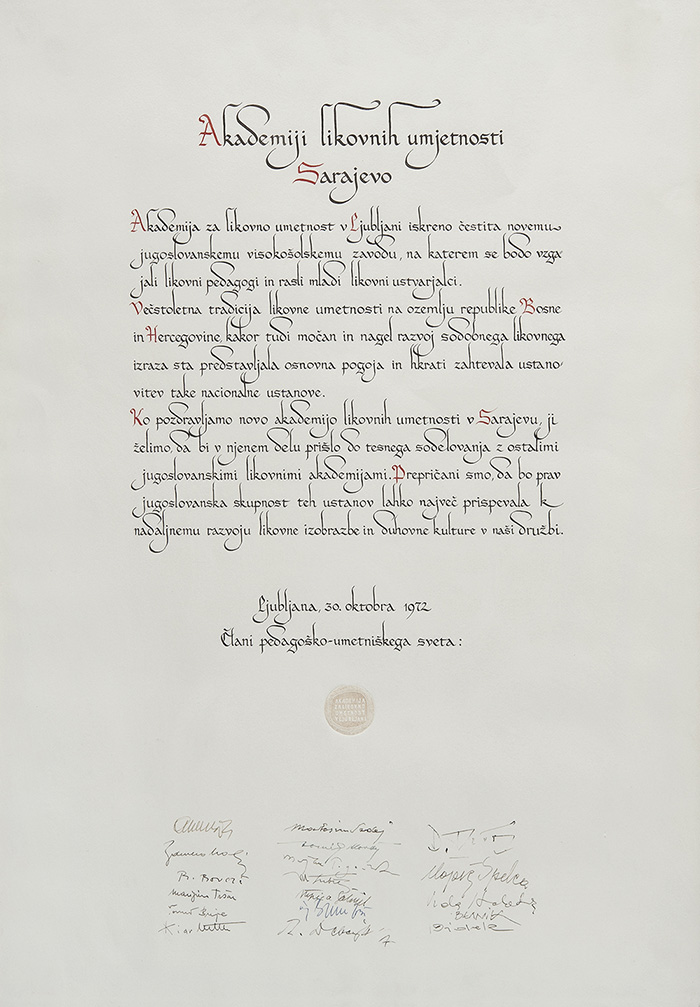 Akademiji likovnih umjetnosti
Sarajevo
Akademija za likovno umetnost v Ljubljani iskreno čestita novemu
jugoslovanskemu visokošolskemu zavodu, na katerem se bodo vzga
jali likovni pedagogi in rasli mladi likovni ustvarjalci.
Večstoletna tradicija likovne umetnosti na ozemlju republike Bosne
in Hercegovine, kakor tudi močan in nagel razvoj sodobnega likovnega
izraza sta predstavljala osnovna pogoja in hkrati zahtevala ustano-
vitev take nacionalne ustanove.
Ko pozdravljamo novo akademijo likovnih umetnosti v Sarajevu, ji
želimo, da bi v njenem delu prišlo do tesnega sodelovanja z ostalimi
jugoslovanskimi likovnimi akademijami. Prepričani smo, da bo prav
jugoslovanska skupnost teh ustanov lahko največ prispevala k
nadaljnemu razvoju likovne izobrazbe in duhovne kulture v naši družbi.
Ljubljana, 30. oktobra 1972
Člani pedagoško-umetniškega sveta: